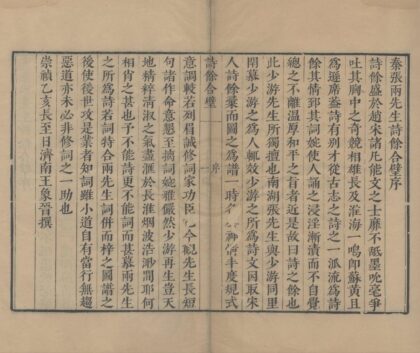 秦張兩先生詩餘合璧序
詩餘盛於趙宋諸凡能文之士靡不舐墨吮毫爭
吐其胸中之奇競相雄長及淮海一鳴卽蘇黃且
爲遜席蓋詩有別才從古志之詩之一派流爲詩
餘其情郅其詞婉使人誦之浸淫漸漬而不自覺
總之不離溫厚和平之旨者近是故曰詩之餘也
此少游先生所獨擅也南湖張先生與少游同里
閈慕少游之爲人輙效少游之所爲詩文因取宋
人詩餘彙而圖之爲譜一時 神情丰度規式
詩餘合璧 序 一
意調較若列眉誠修詞家功臣 今觀先生長短
句諸作命意懇至摛詞婉雅儼然少游再生豈天
地精粹清淑之氣盡滙於長淮烟波浩渺間耶何
相肖之甚也予不能詩更不能詞而甚慕兩先生
之所爲詩若詞特合兩先生詞併而梓之圖譜之
後使後世攻是業者知詞雖小道自有當行無趨
惡道亦未必非修詞之一助也
崇禎乙亥長至日濟南王象晉撰